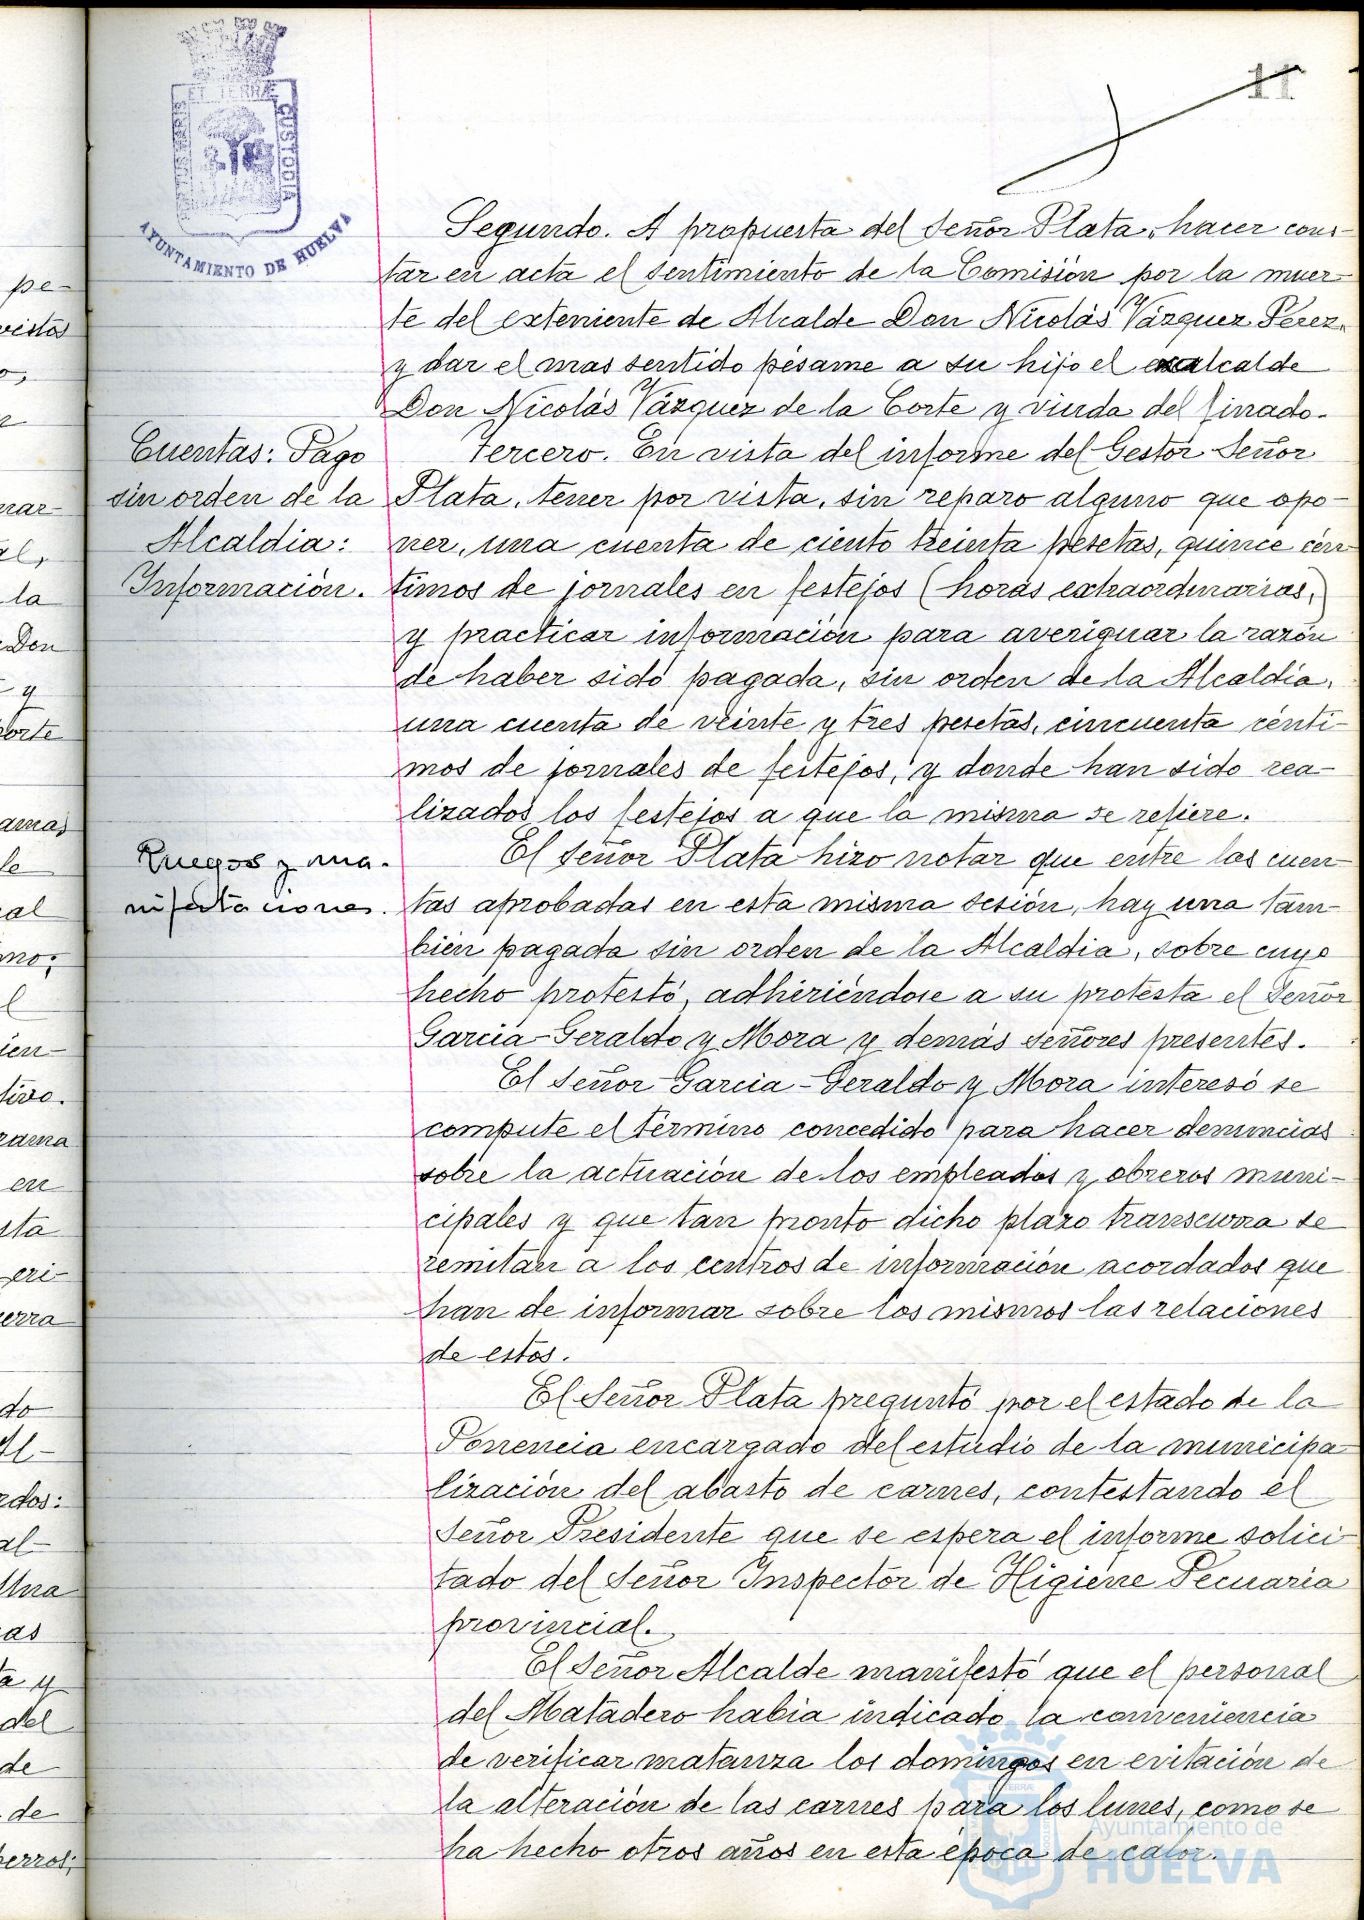 11
PORTUS MARIS ET TERRÆ CUSTODIA
AYUNTAMIENTO DE HUELVA
Segundo. A propuesta del Señor Plata, hacer cons-
tar en acta el sentimiento de la Comisión por la muer-
te del exteniente de Alcalde Don Nicolás Vázquez Pérez,
y dar el mas sentido pésame a su hijo el exalcalde
Don Nicolás Vázquez de la Corte y viuda del finado.
Cuentas: Pago
sin orden de la
Alcaldia:
Información.
Tercero. En vista del informe del Gestor Señor
Plata, tener por vista, sin reparo alguno que opo-
ner, una cuenta de ciento treinta pesetas, quince cén-
timos de jornales en festejos (horas extraordinarias,)
y practicar información para averiguar la razón
de haber sido pagada, sin orden de la Alcaldía,
una cuenta de veinte y tres pesetas, cincuenta cénti-
mos de jornales de festejos, y donde han sido rea-
lizados los festejos a que la misma se refiere.
Ruegos y ma-
nifestaciones.
El Señor Plata hizo notar que entre las cuen-
tas aprobadas en esta misma sesión, hay una tam-
bién pagada sin orden de la Alcaldia, sobre cuyo
hecho protestó, adhiriéndose a su protesta el Señor
Garcia-Geraldo y Mora y demás señores presentes.
El Señor Garcia-Geraldo y Mora interesó se
compute el término concedido para hacer denuncias
sobre la actuación de los empleados y obreros muni-
cipales y que tan pronto dicho plazo transcurra se
remitan a los centros de información acordados que
han de informar sobre los mismos las relaciones
de estos.
El Señor Plata preguntó por el estado de la
Ponencia encargado del estudio de la municipa
lización del abasto de carnes, contestando el
Señor Presidente que se espera el informe solici-
tado del Señor Inspector de Higiene Pecuaria
provincial.
El Señor Alcalde manifestó que el personal
del Matadero habia indicado la conveniencia
de verificar matanza los domingos en evitación de
la alteración de las carnes para los lunes, como se
ha hecho otros años en esta época de calor.
Ayuntamiento de
HUELVA
pe-
vistos
mar-
al,
la
Don
y
orte
le
al
mo;
l
ien-
tivo.
rama
en
sta
eri-
erra
do
Al-
rdos:
al-
Una
as
a y
del
de
de
perros;